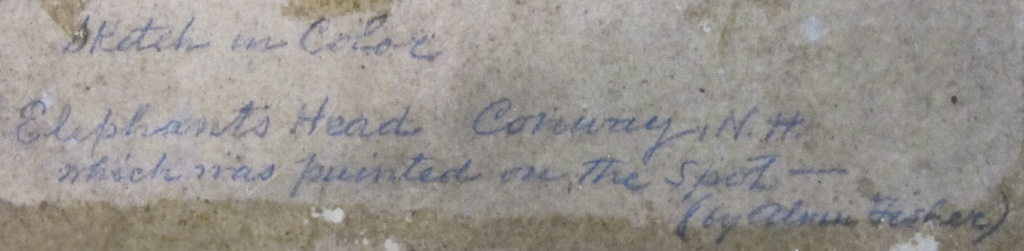 Sketch in Color
Elephants Head Conway, N.H.
which was painted on the Spot —
(by Alvin Fisher)